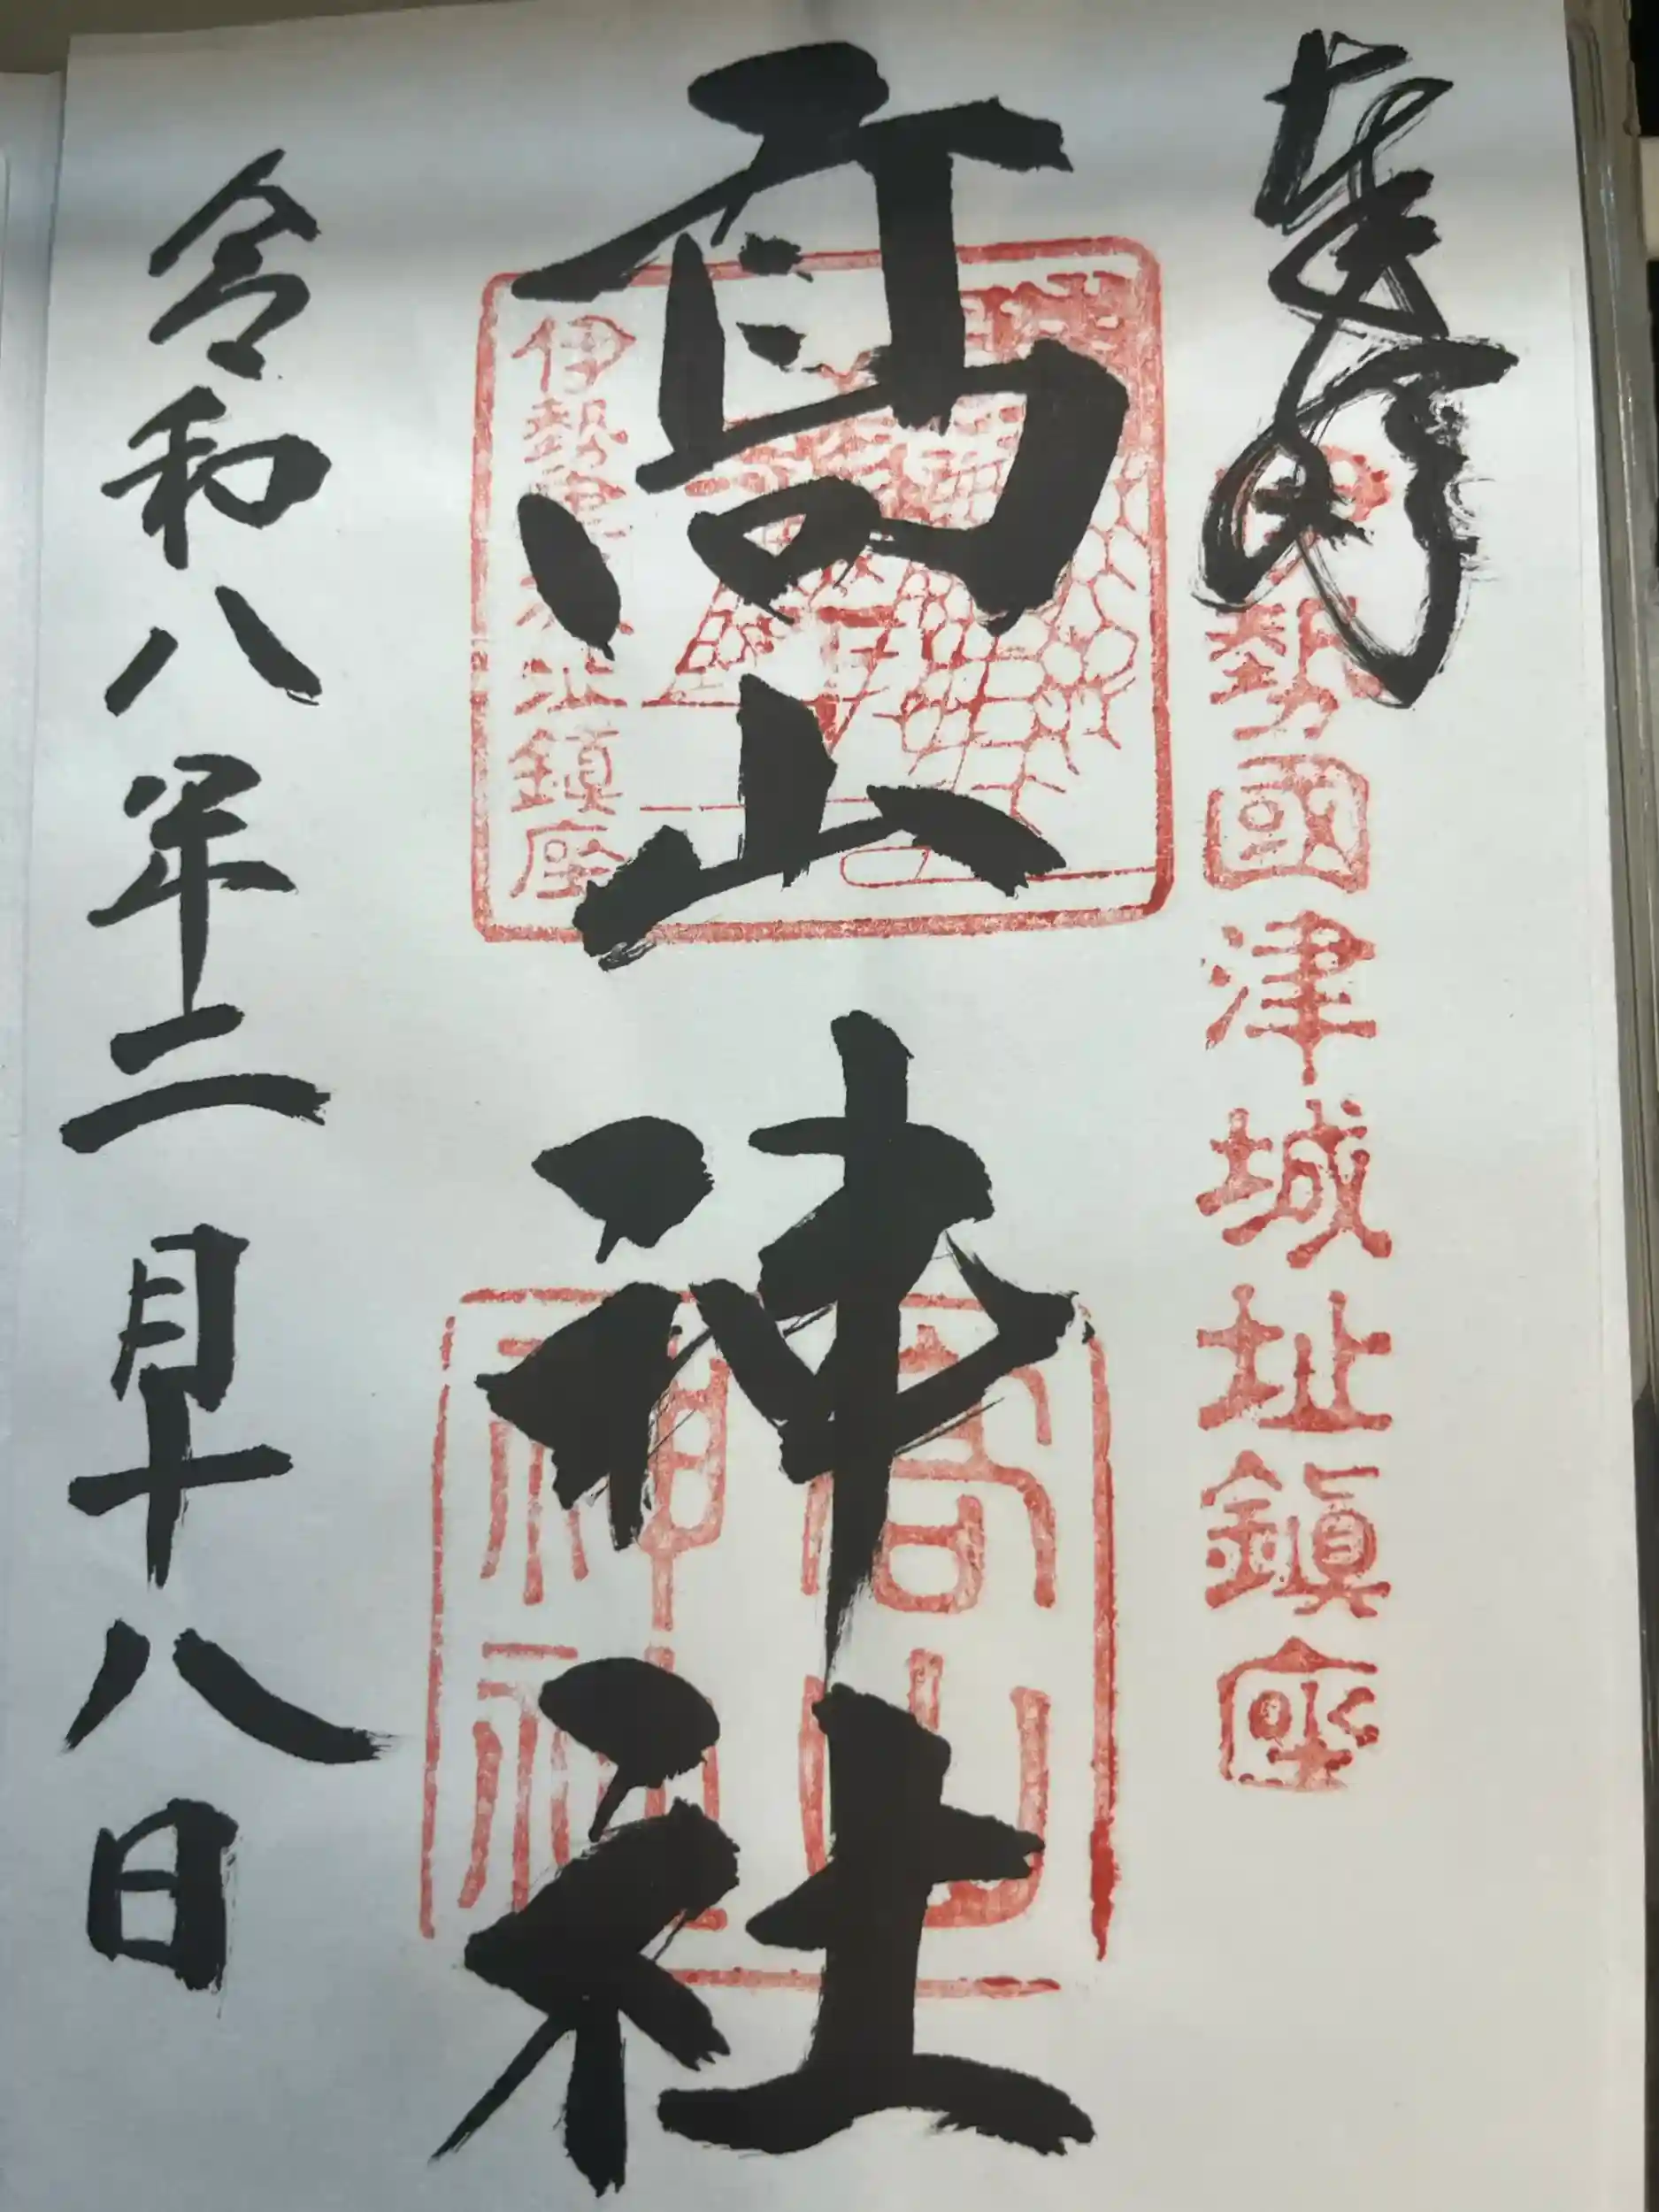 奉拝
伊勢國津城址鎮座
髙山神社
伊勢津城址鎮座
高山
神社
令和八年二月十八日